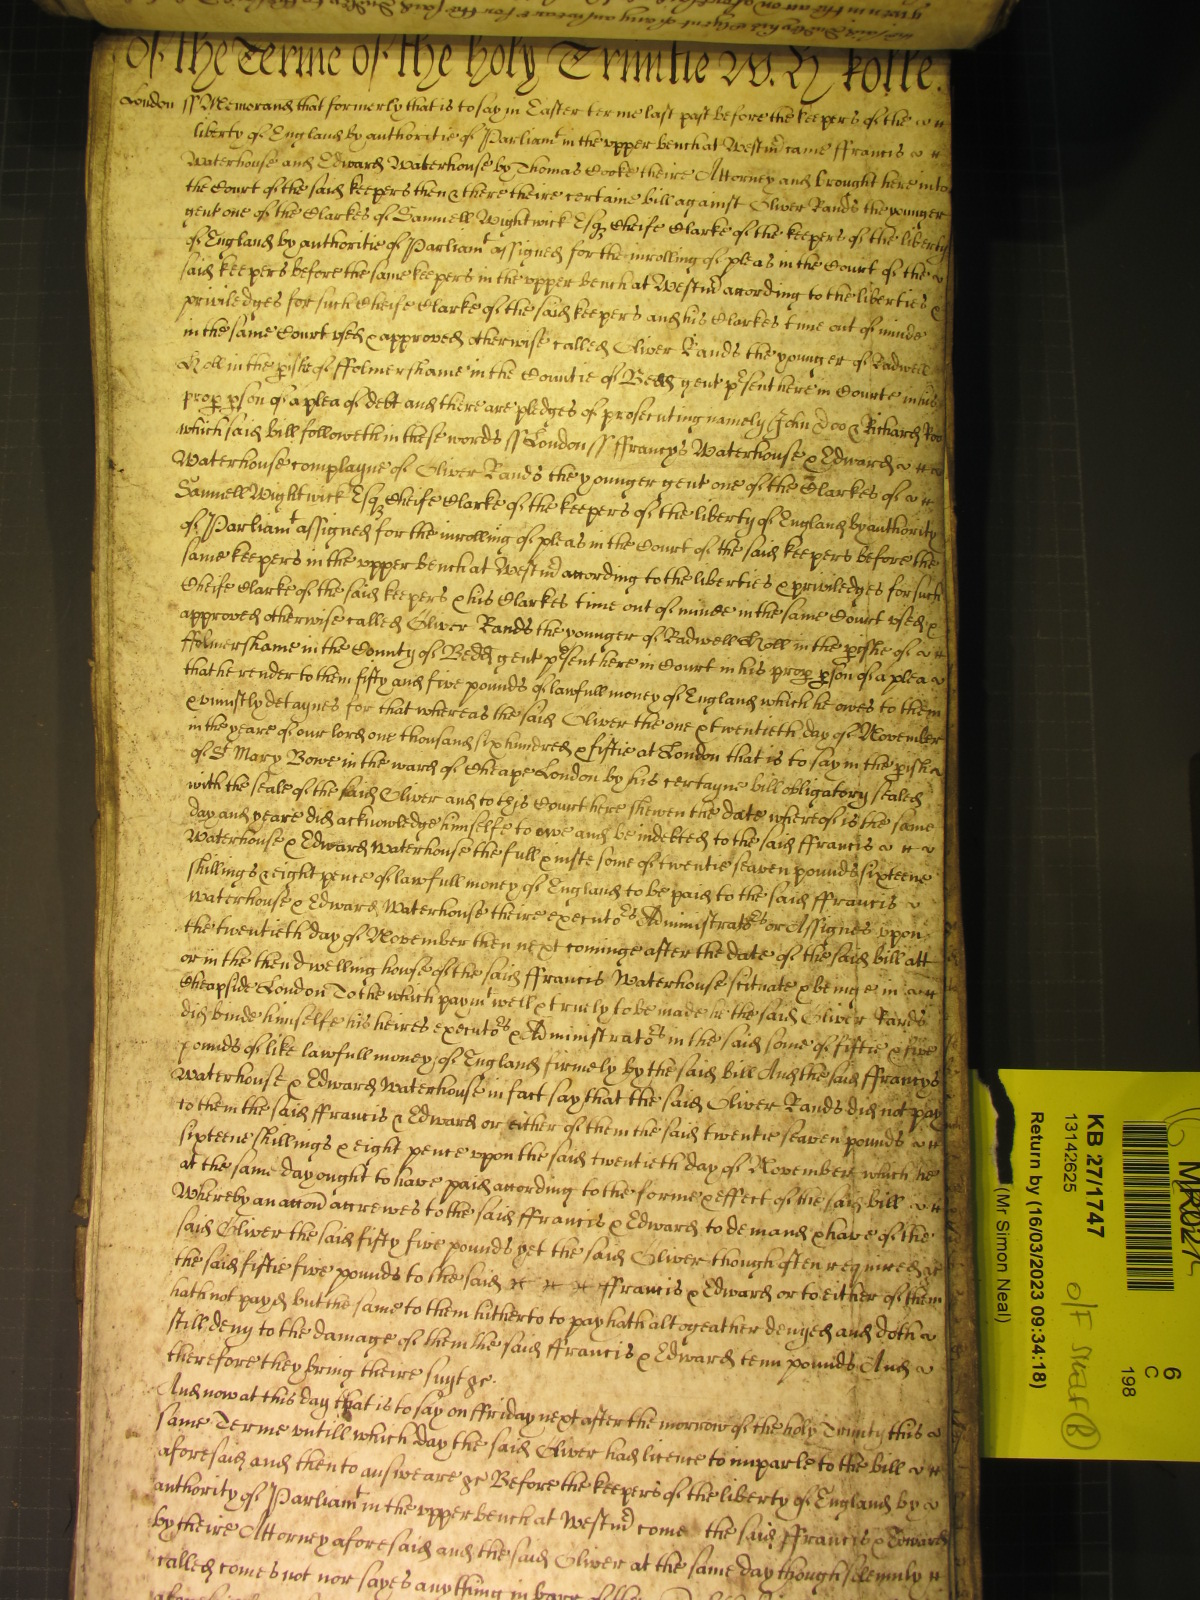 of the Terme of the holy Trinitie W. H Rolle.
London ss Memorand that formerly that is to say in Easter terme last past before the keepers of the
liberty of England by authoritie of Parliamt in the upper bench at Westmr came ffrancis
Waterhouse and Edward Waterhouse by Thomas Cooke theire Attorney and brought here into
the Court of the said keepers then & there theire certaine bill against Oliver Rands the younger
gent one of the Clarkes of Samuell Wightwick Esqr Cheife Clarke of the keepers of the liberty
of England by authoritie of Parliamt assigned for the inrolling of pleas in the Court of the
said keepers before the same keepers in the upper bench at Westmr according to the liberties &
priviledges for such Cheife Clarke of the said keepers and his Clarkes time out of minde
in the same Court used & approved otherwise called Oliver Rands the younger of Radwell
in the pishe of ffolmershame in the Countie of Bedd gent psent here in Courte in his
prop pson of a plea of debt and there are pledges of prosecuting namely John Doo & Richard Roo
which said bill followeth in these words ss London ss ffrancys Waterhouse & Edward
Waterhouse complayne of Oliver Rands the younger gent one of the Clarkes of
Samuell Wightwick Esqr Cheife Clarke of the keepers of the liberty of England by authority
of Parliamt assigned for the inrolling of pleas in the Court of the said keepers before the
same keepers in the upper bench at Westmr according to the liberties & priviledges for such
Cheife Clarke of the said keepers & his Clarkes time out of minde in the same Court used &
approved otherwise called Oliver Rands the younger of Radwell in the pishe of
ffolmershame in the County of Bedd gent psent here in Court in his prop pson of a plea
that he render to them fifty and five pounds of lawfull money of England which he owes to them
& uniustly detaynes for that whereas the said Oliver the one & twentieth day of November
in the yeare of our lord one thousand six hundred & fiftie at London that is to say in the pishe
of St Mary Bowe in the ward of Cheape London by his certayne bill obligatory sealed
with the seale of the said Oliver and to this Court here shewen the date whereof is the same
day and yeare did acknowledge himselfe to owe and be indebted to the said ffrancis
Waterhouse & Edward Waterhouse the full & iuste some of twentie seaven pounds sixteene
shillings & eight pence of lawfull money of England to be paid to the said ffrancis
Waterhouse & Edward Waterhouse theire executors Administrators or Assignes upon
the twentieth day of November then next cominge after the date of the said bill att
or in the then dwelling house of the said ffrancis Waterhouse scituate & beinge in
Cheapside London To the which paymt well & truely to be made he the said Oliver Rands
did binde himselfe his heires executors & Administrators in the said some of fiftie & five
pounds of like lawfull money of England firmely by the said bill And the said ffrancys
Waterhouse & Edward Waterhouse in fact say that the said Oliver Rands did not pay
to them the said ffrancis & Edward or either of them the said twentie seaven pounds
sixteene shillings & eight pence upon the said twentieth day of November which he
at the same day ought to have paid according to the forme & effect of the said bill
Whereby an accon accrewes to the said ffrancis & Edward to demand & have of the
said Oliver the said fifty five pounds yet the said Oliver though often required &c
the said fiftie five pounds to the said ffrancis & Edward or to either of them
hath not payd but the same to them hitherto to pay hath altogeather denyed and doth
still deny to the damage of them the said ffrancis & Edward tenn pounds And
therefore they bring theire suyt &c.
And now at this day that is to say on ffriday next after the morrow of the holy Trinity this
same Terme untill which day the said Oliver had licence to imparle to the bill
aforesaid and then to answeare &c Before the keepers of the liberty of England by
authority of Parliamt in the upper bench at Westmr come the said ffrancis & Edward
by theire Attorney aforesaid and the said Oliver at the same day though solemnly
called comes not nor sayes any thing in
KB 27/1747
13142625
Return by (16/03/2023 09:34:18)
(Mr Simon Neal)
6
C
198